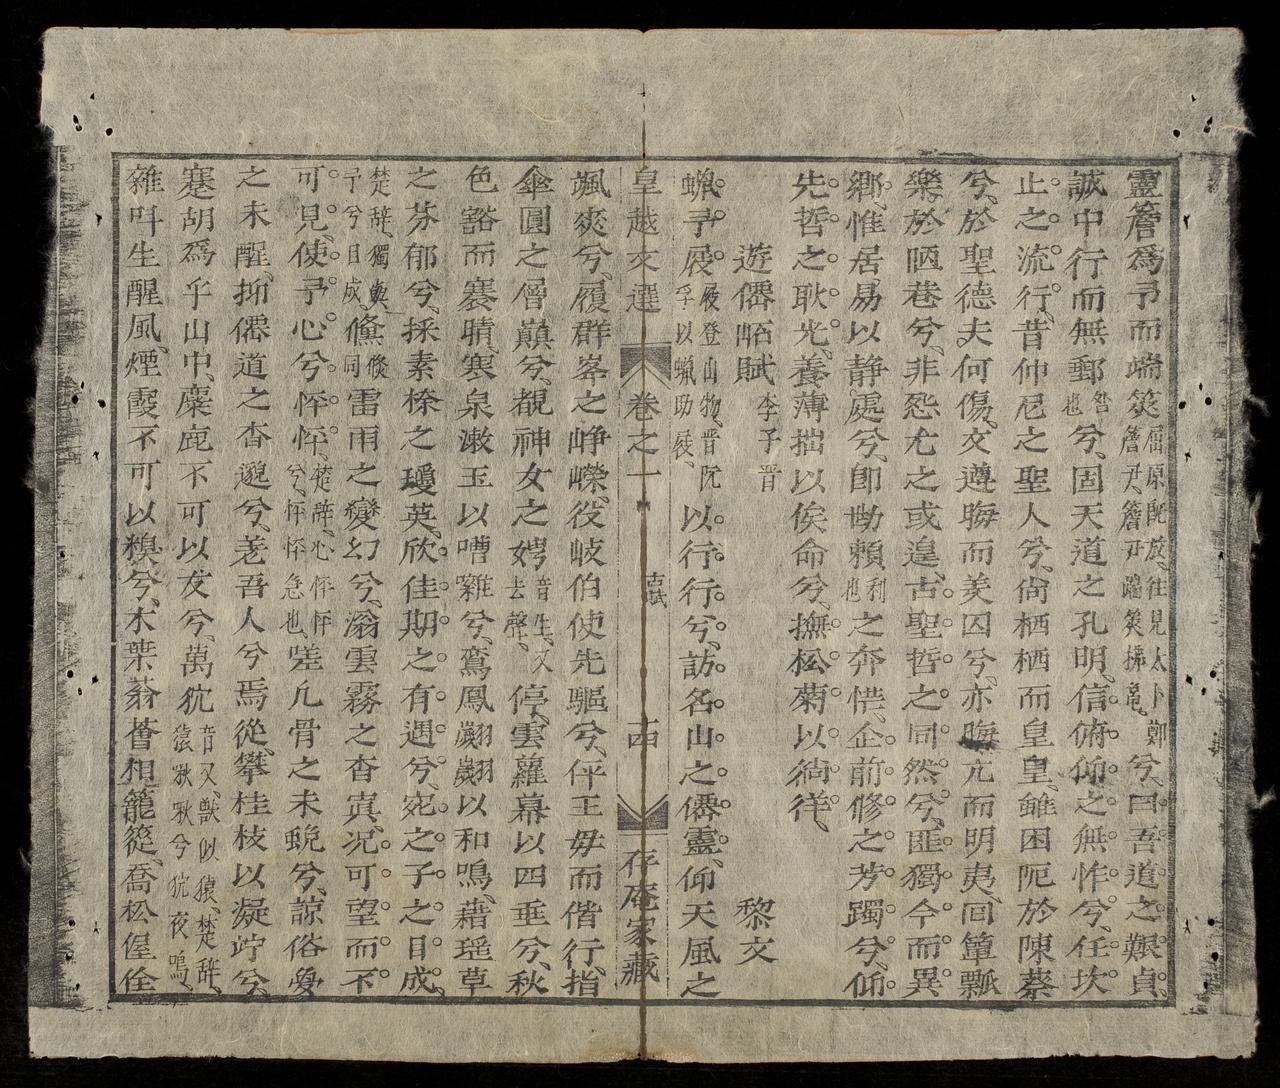 靈簷為予而端筴屈原既放、往見太卜鄭詹尹、簷尹端筴拂龜、兮、曰吾道之艱貞、
誠中行而無郵咎也兮、固天道之孔明、信俯仰之無怍兮、任坎
止之流行、昔仲尼之聖人兮、尙栖栖而皇皇、雖困阨於陳蔡
兮、於聖德夫何傷、文遵晦而羑囚兮、亦晦亢而明夷、回簞瓢
樂於陋巷兮、非怨尤之或遑、古聖哲之同然兮、匪獨今而異
鄉、惟居易以静處兮、卽勩賴利也之奔惂、企前修之芳躅兮、仰
先哲之耿光、養薄拙以俟命兮、撫松菊以徜徉、
遊僊岾賦 李子晋 黎文
蠟予屐屐登山物、晋阮孚以蠟助屐、以行行兮、訪名山之僊靈、仰天風之
皇越文選 卷之一 古賦 十四 存庵家藏
颯爽兮、履群峯之崢嶸、役岐伯使先驅兮、伻王毋而偕行、指
傘圓之僧巔兮、覩神女之娉音生、又去聲、停、雲蘿幕以四垂兮、秋
色豁而褰晴、寒泉潄玉以嘈雜兮、鸞鳳翽翽以和鳴、藉瑶草
之芬郁兮、採素㮈之瓊英、欣佳期之有遇兮、宛之子之目成、
楚辞、獨與予兮目成、儵倏同雷雨之變幻兮、滃雲霧之杳冥、况可望而不
可見、使予心兮怦怦、楚辞、心怦怦兮、怦怦急也、嗟凡骨之未蛻兮、諒俗夢
之未醒、抑僊道之杳邈兮、羌吾人兮焉從、攀桂枝以凝竚兮、
蹇胡為乎山中、麋鹿不可以友兮、萬狖音又、獸似猿、楚辞、猿啾啾兮狖夜鳴、
雜呌生醒風、煙霞不可以糗兮、木葉蓊薈相籠蓯、喬松偓佺